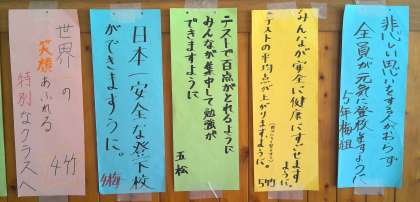 悲しい思いをする人がおらず
全員が元気に登校できますように
5年梅組
みんなが安全に健康にすごせます
ように。
テストの平均点が上がりますように。
5竹
テストで百点がとれるように
みんなが集中して勉強が
できますように
五松
日本一安全な登下校
ができますように。
4梅
世界一の
笑顔あふれる
特別なクラスへ
4竹